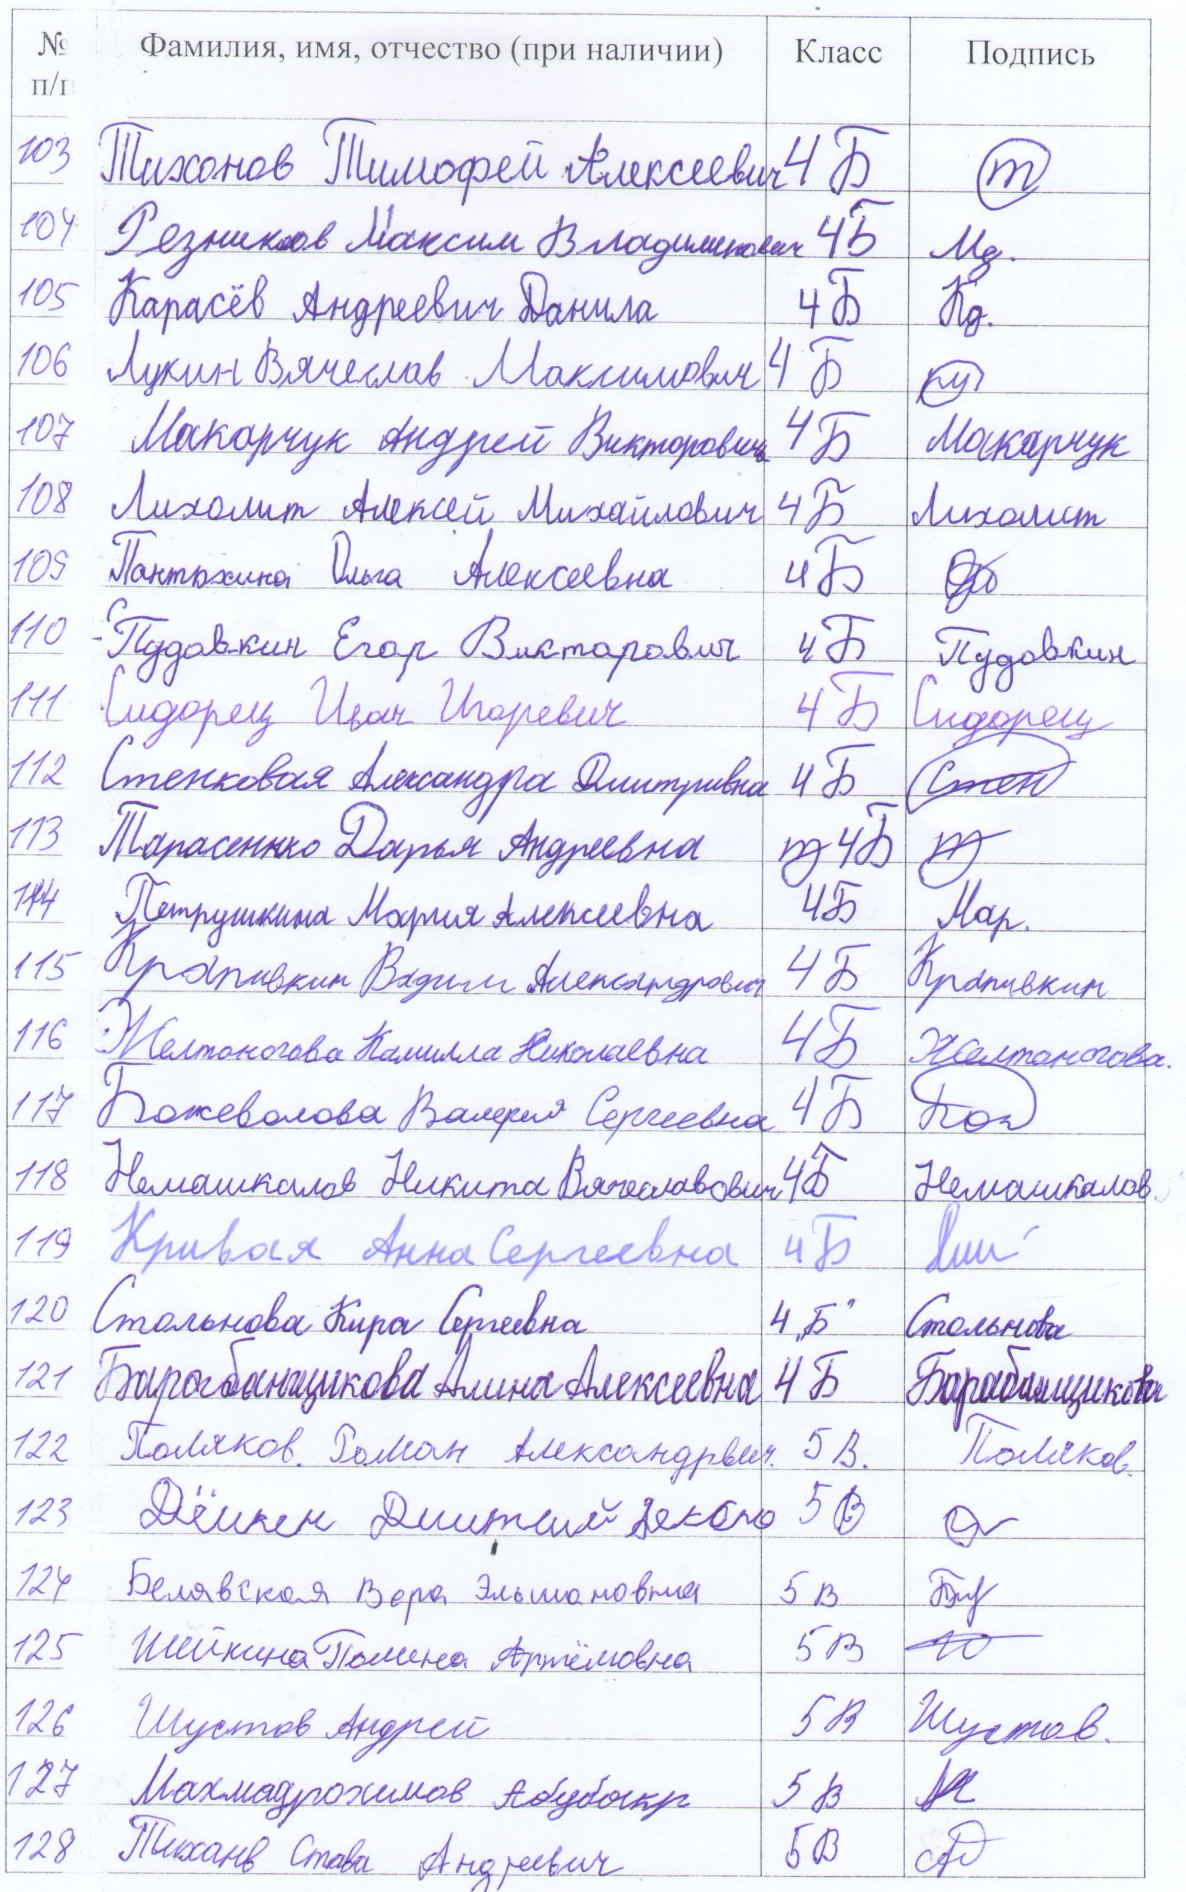 № п/п Фамилия, имя, отчество (при наличии) Класс Подпись
103 Тихонов Тимофей Алексеевич 4 Б т
104 Резников Максим Владимирович 4Б
105 Карасёв Андреевич Данила 4 Б Кд.
106 Лукин Вячеслав Максимович 4 Б
107 Макарчук Андрей Викторович 4 Б Макарчук
108 Лихолит Алексей Михайлович 4 Б Лихолит
109 Пантюхина Ольга Алексеевна 4 Б
110 Пудовкин Егор Викторович 4 Б Пудовкин
111 Сидорец Иван Игоревич 4 Б Сидорец
112 Стенковая Александра Дмитривна 4 Б Стен
113 Тарасенко Дарья Андреевна 4Б
114 Петрушкина Мария Алексеевна 4Б Мар.
115 Крапивкин Вадим Александрович 4 Б Крапивкин
116 Желтоногова Камилла Николаевна 4 Б Желтоногова.
117 Божеволова Валерия Сергеевна 4 Б
118 Немашкалов Никита Вячеславович 4Б Немашкалов
119 Кривая Анна Сергеевна 4 Б
120 Стольнова Кира Сергеевна 4 „Б" Стольнова
121 Барабанщикова Алина Алексеевна 4 Б Барабанщикова
122 Поляков. Роман Александрвич. 5 В. Поляков.
123 5 В
124 Белявская Вера Эльшановна 5 В
125 Шейкина Полина Артёмовна 5 В
126 Шустов Андрей 5 В Шустов.
127 5 В
128 Андреевич 5В